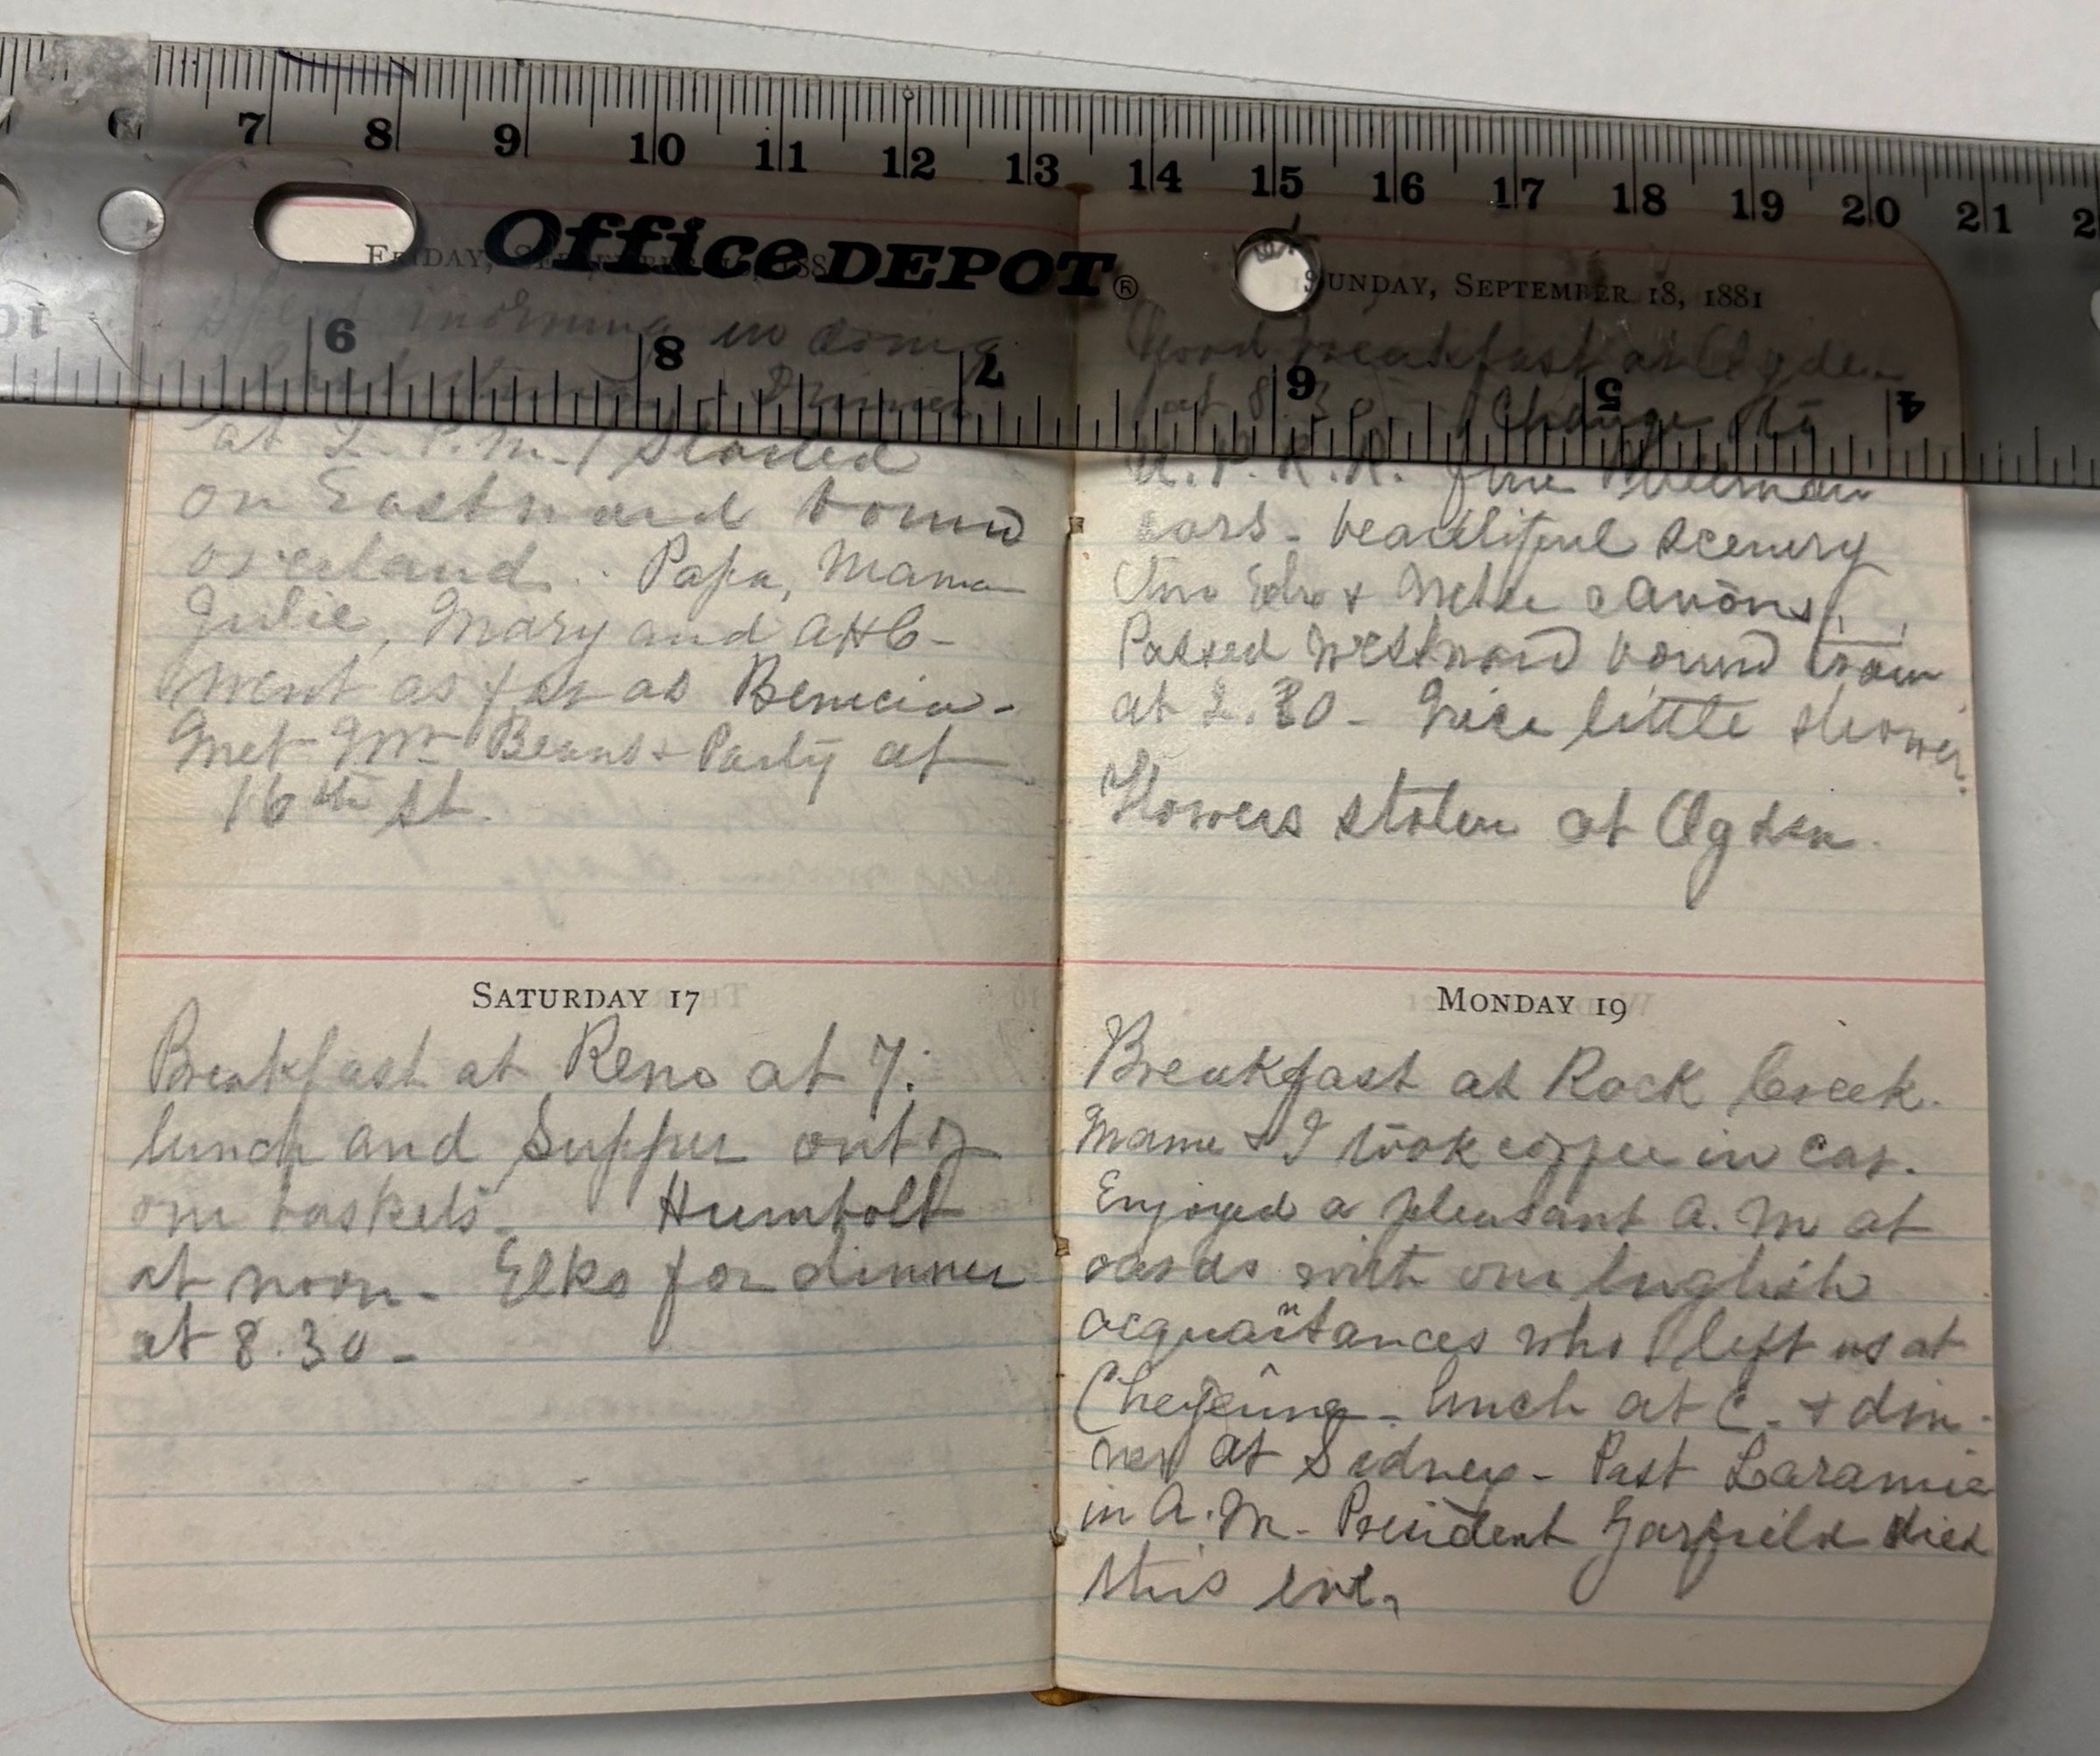 7 8 9 10 11 12 13 14 15 16 17 18 19 20 21
Office DEPOT®
9 8 7 6 5 4
FRIDAY, SEPTEMBER 188
Spent morning in doing
Dinner
at 2 P.M. Started
on Eastward bound
overland. Papa, Mama
Julie, Mary and AHC-
went as far as Benecia-
Met Mr Beans + Party at
16th St.
SATURDAY 17
Breakfast at Reno at 7.
lunch and Supper out of
our baskets. Humbolt
at noon- Elko for dinner
at 8.30-
SUNDAY, SEPTEMBER 18, 1881
Good breakfast at Ogden
at 8.30 Change to
U.P.R.R. fine Pullman
cars- beautiful scenery
canons
Passed westward bound train
at 2.30- Nice little shower.
Flowers stolen at Ogden.
MONDAY 19
Breakfast at Rock Creek.
Mame + I took coffee in car.
Enjoyed a pleasant A.M at
cards with our English
acquaintances who left us at
Cheyenne- lunch at C. + din-
ner at Sidney- Past Laramie
in A.M- President Garfield died
this eve.